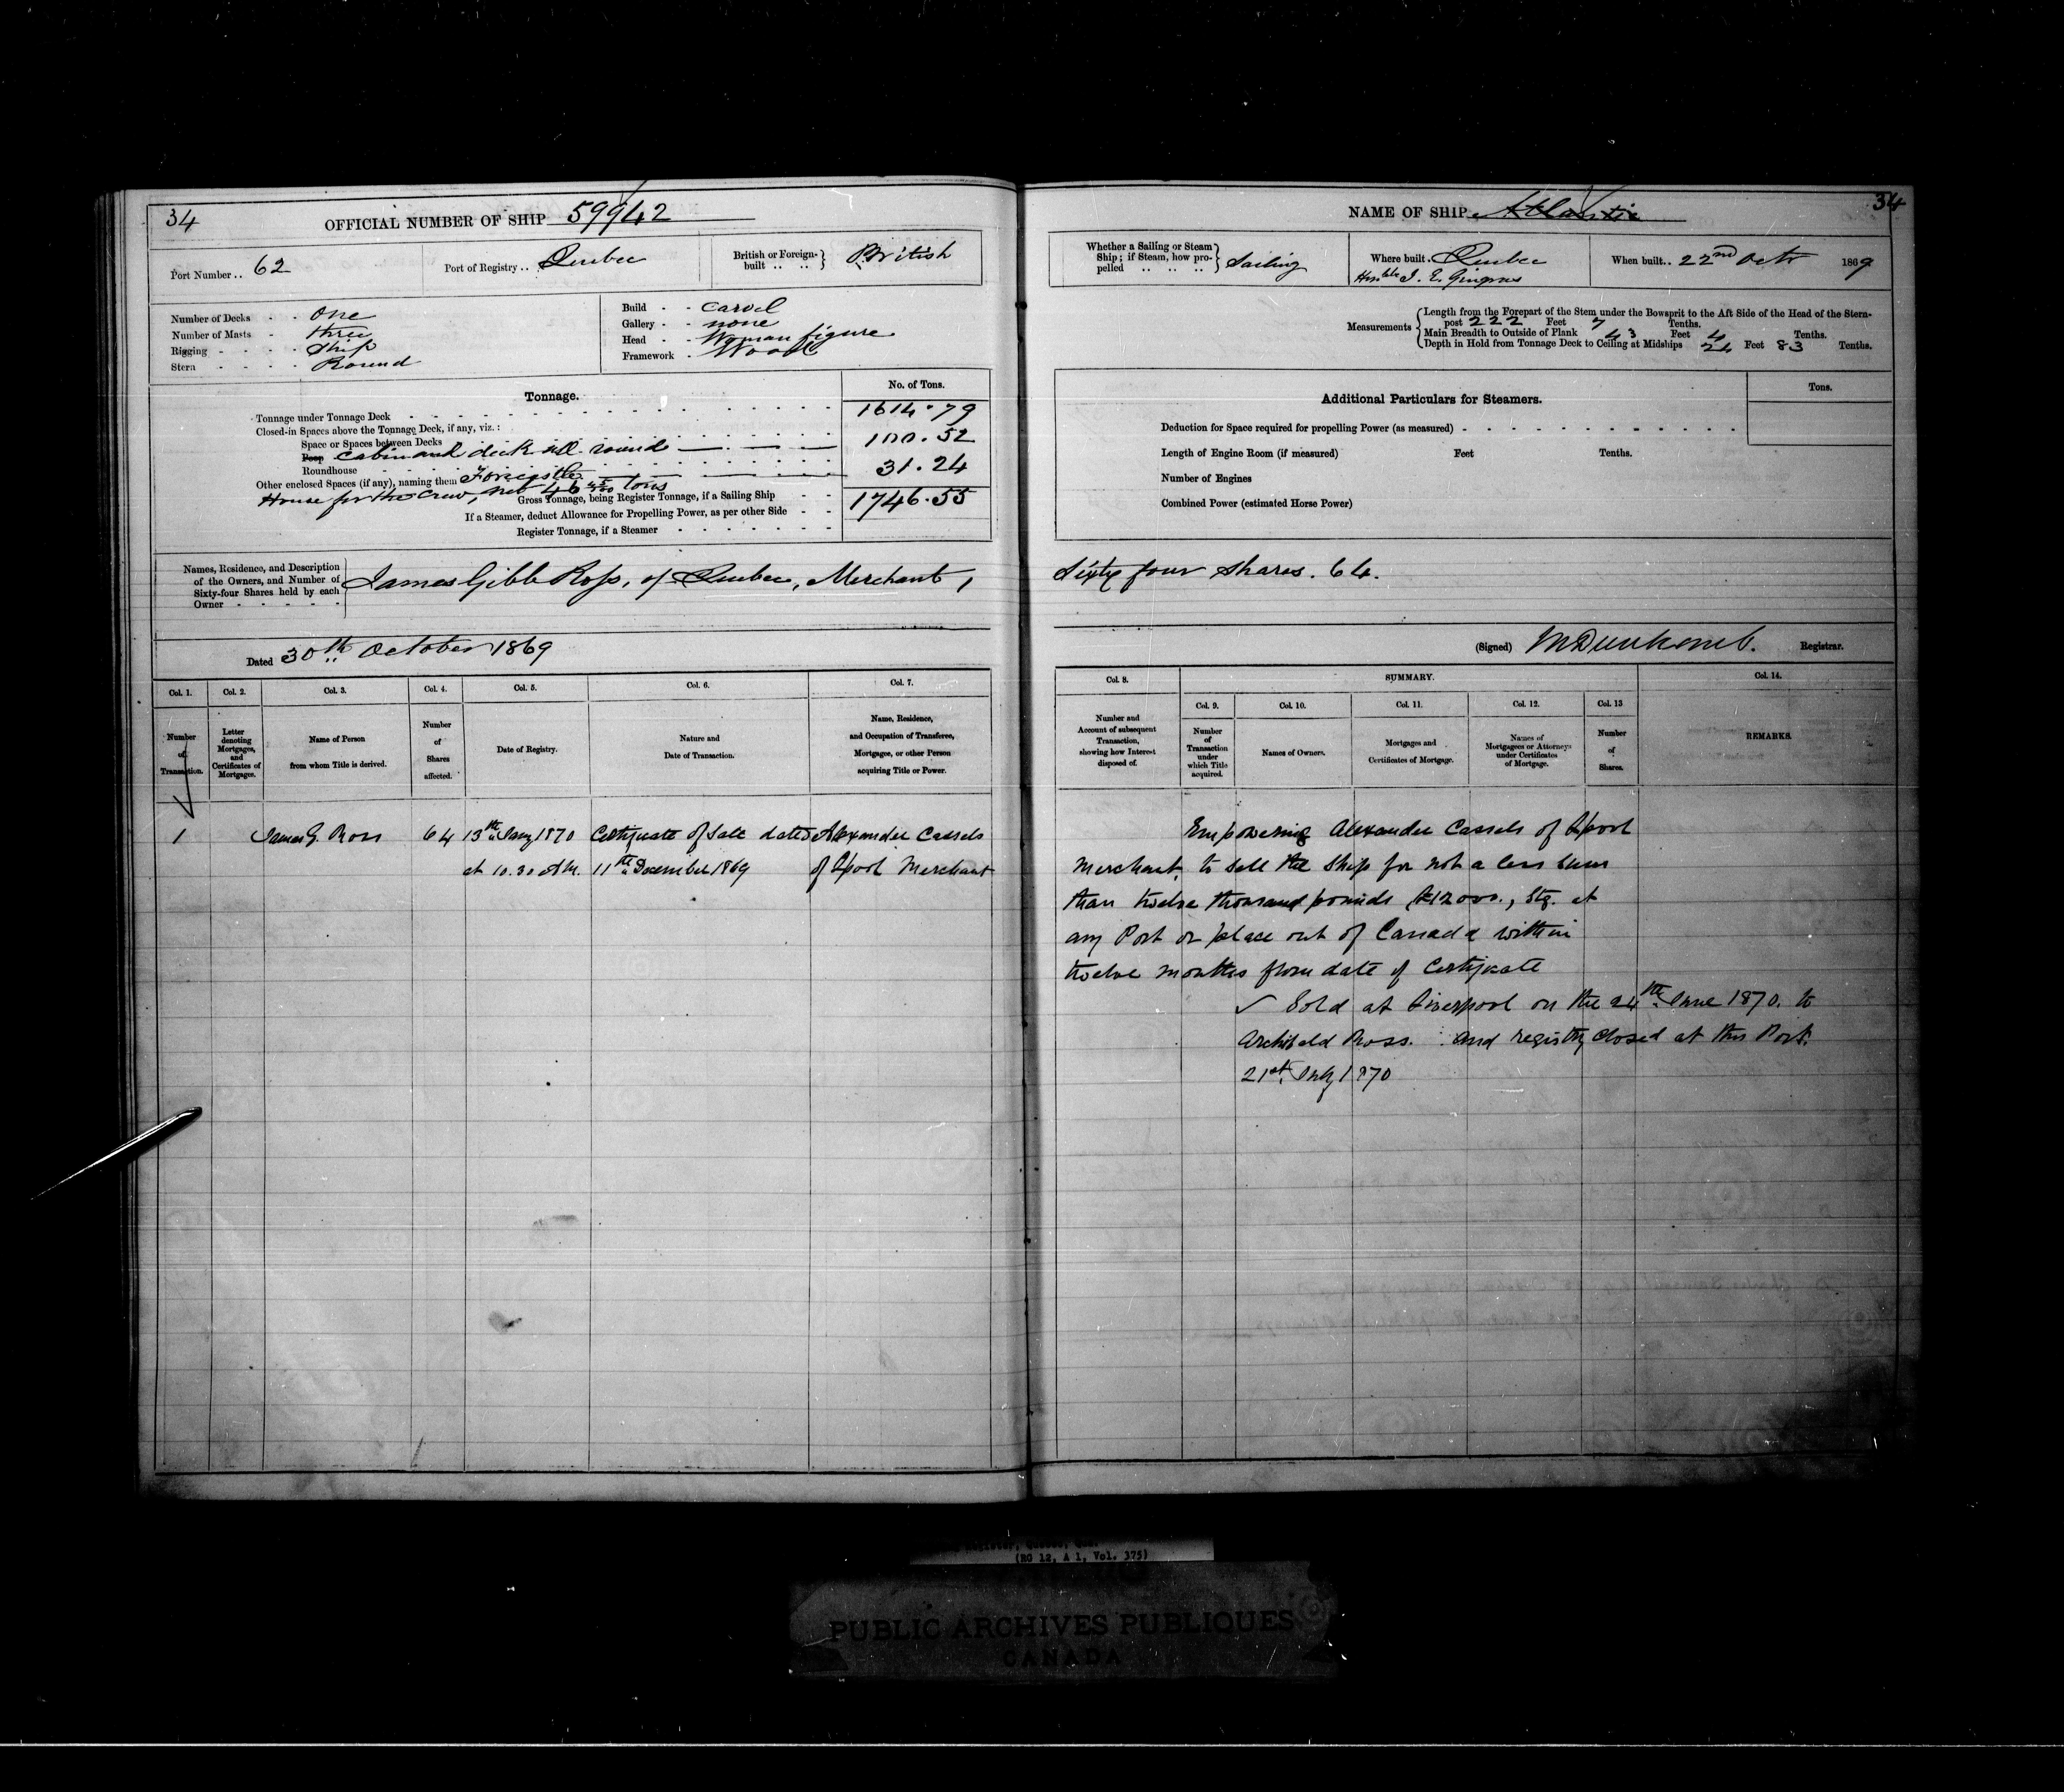 34
OFFICIAL NUMBER OF SHIP 59942
Port Number .. 62
Port of Registry .. Quebec
British or Foreign-built .. .. British
Number of Decks - - One
Number of Masts - three
Rigging - - - - Ship
Stern - - - - Round
Build - - Carvel
Gallery - - none
Head - - Woman figure
Framework - Wood
Tonnage.
No. of Tons.
Tonnage under Tonnage Deck 1614.79
Closed-in Spaces above the Tonnage Deck, if any, viz.:
Space or Spaces between Decks
Poop Cabin and deck all round 100.52
Roundhouse
Other enclosed Spaces (if any), naming them Forecastle 31.24
House for the Crew, net 46 tons
Gross Tonnage, being Register Tonnage, if a Sailing Ship 1746.55
If a Steamer, deduct Allowance for Propelling Power, as per other Side
Register Tonnage, if a Steamer
Names, Residence, and Description
of the Owners, and Number of
Sixty-four Shares held by each
Owner
James Gibb Ross, of Quebec, Merchant,
Dated 30th October 1869
Col. 1. Col. 2. Col. 3. Col. 4. Col. 5. Col. 6. Col. 7.
Number of Transaction.
Letter denoting Mortgages, and Certificates of Mortgages.
Name of Person from whom Title is derived.
Number of Shares affected.
Date of Registry.
Nature and Date of Transaction.
Name, Residence, and Occupation of Transferee, Mortgagee, or other Person acquiring Title or Power.
1 James G. Ross 64 13th Jany 1870 Certificate of Sale dated Alexander Cassels
at 10.30 AM. 11th December 1869 of Lpool Merchant
34
NAME OF SHIP Atlantic
Whether a Sailing or Steam Ship; if Steam, how propelled .. .. .. Sailing
Where built . Quebec
Honble J. E. Gingras
When built .. 22nd Octr 1869
Measurements
Length from the Forepart of the Stem under the Bowsprit to the Aft Side of the Head of the Stern-
post 222 Feet 7 Tenths.
Main Breadth to Outside of Plank 43 Feet 4 Tenths.
Depth in Hold from Tonnage Deck to Ceiling at Midships 24 Feet 83 Tenths.
Additional Particulars for Steamers.
Tons.
Deduction for Space required for propelling Power (as measured)
Length of Engine Room (if measured) Feet Tenths.
Number of Engines
Combined Power (estimated Horse Power)
Sixty four shares. 64.
(Signed) Registrar.
Col. 8. SUMMARY. Col. 14.
Col. 9. Col. 10. Col. 11. Col. 12. Col. 13
Number and Account of subsequent Transaction, showing how Interest disposed of.
Number of Transaction under which Title acquired.
Names of Owners.
Mortgages and Certificates of Mortgage.
Names of Mortgagees or Attorneys under Certificates of Mortgage.
Number of Shares.
REMARKS.
Empowering Alexander Cassels of Lpool
Merchant, to sell the Ship for not a less sum
than twelve thousand pounds £12000., Stg. at
any Port or place out of Canada within
twelve months from date of Certificate
✓ Sold at Liverpool on the 24th June 1870. to
Archibald Ross. And registry closed at this Port.
21st July 1870
(RG 12, A 1, Vol. 375)
PUBLIC ARCHIVES PUBLIQUES
CANADA